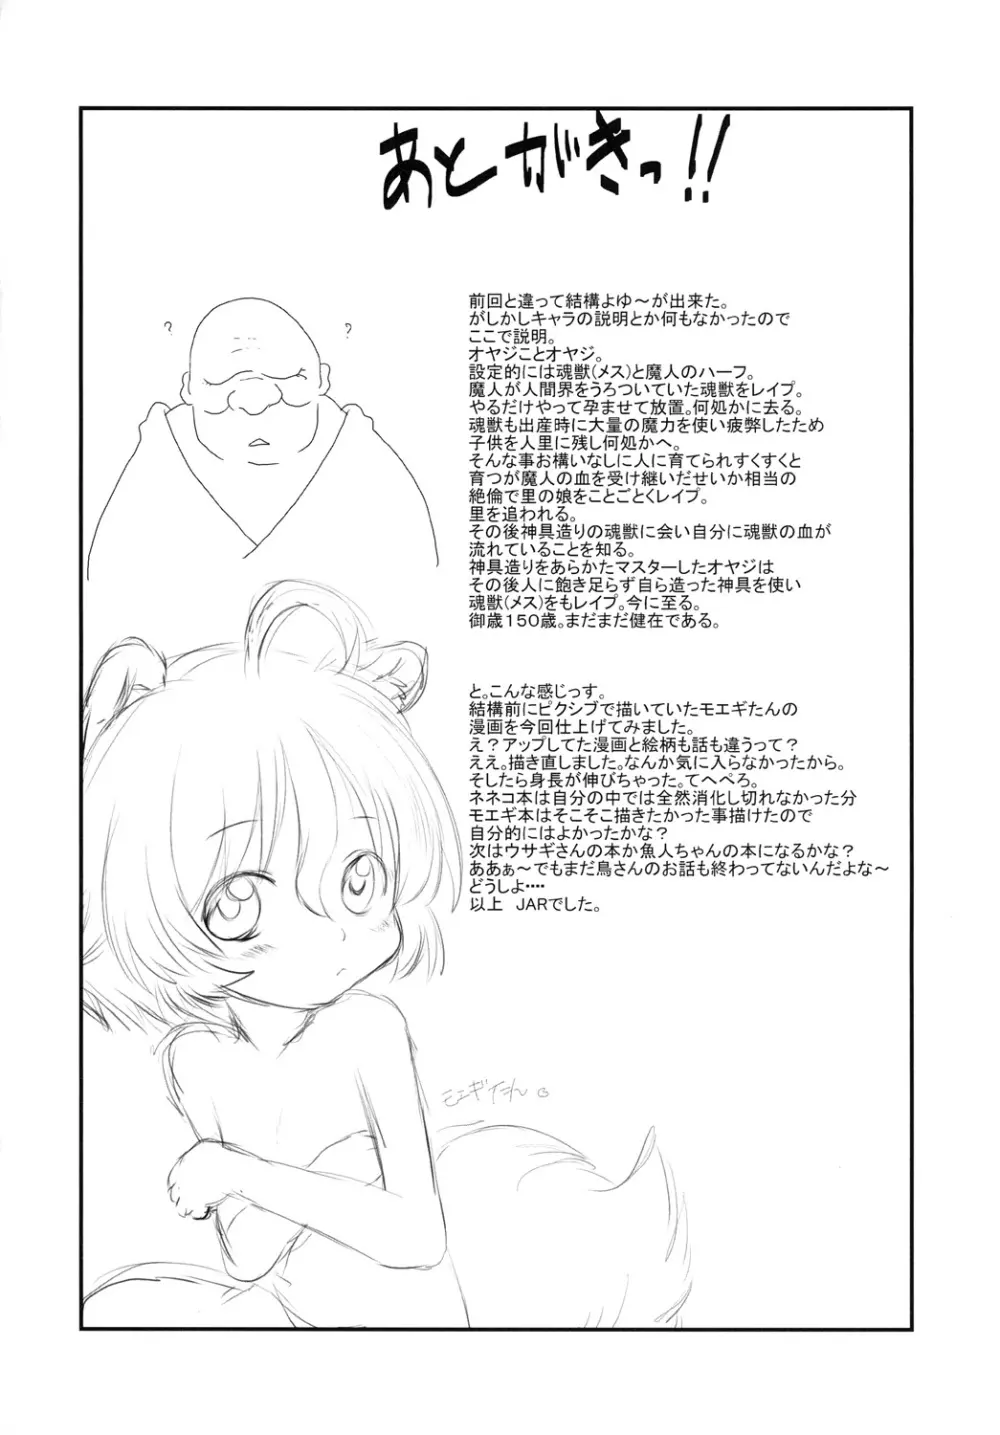 あとがきっ!!
?
?
前回と違って結構よゆ～が出来た。
がしかしキャラの説明とか何もなかったので
ここで説明。
オヤジことオヤジ。
設定的には魂獣(メス)と魔人のハーフ。
魔人が人間界をうろついていた魂獣をレイプ。
やるだけやって孕ませて放置。何処かに去る。
魂獣も出産時に大量の魔力を使い疲弊したため
子供を人里に残し何処かへ。
そんな事お構いなしに人に育てられすくすくと
育つが魔人の血を受け継いだせいか相当の
絶倫で里の娘をことごとくレイプ。
里を追われる。
その後神具造りの魂獣に会い自分に魂獣の血が
流れていることを知る。
神具造りをあらかたマスターしたオヤジは
その後人に飽き足らず自ら造った神具を使い
魂獣(メス)をもレイプ。今に至る。
御歳150歳。まだまだ健在である。
と。こんな感じっす。
結構前にピクシブで描いていたモエギたんの
漫画を今回仕上げてみました。
え？アップしてた漫画と絵柄も話も違うって？
ええ。描き直しました。なんか気に入らなかったから。
そしたら身長が伸びちゃった。てへぺろ。
ネネコ本は自分の中では全然消化し切れなかった分
モエギ本はそこそこ描きたかった事描けたので
自分的にはよかったかな？
次はウサギさんの本か魚人ちゃんの本になるかな？
ああぁ～でもまだ鳥さんのお話も終わってないんだよな～
どうしよ‥‥
以上　JARでした。
モエギたん